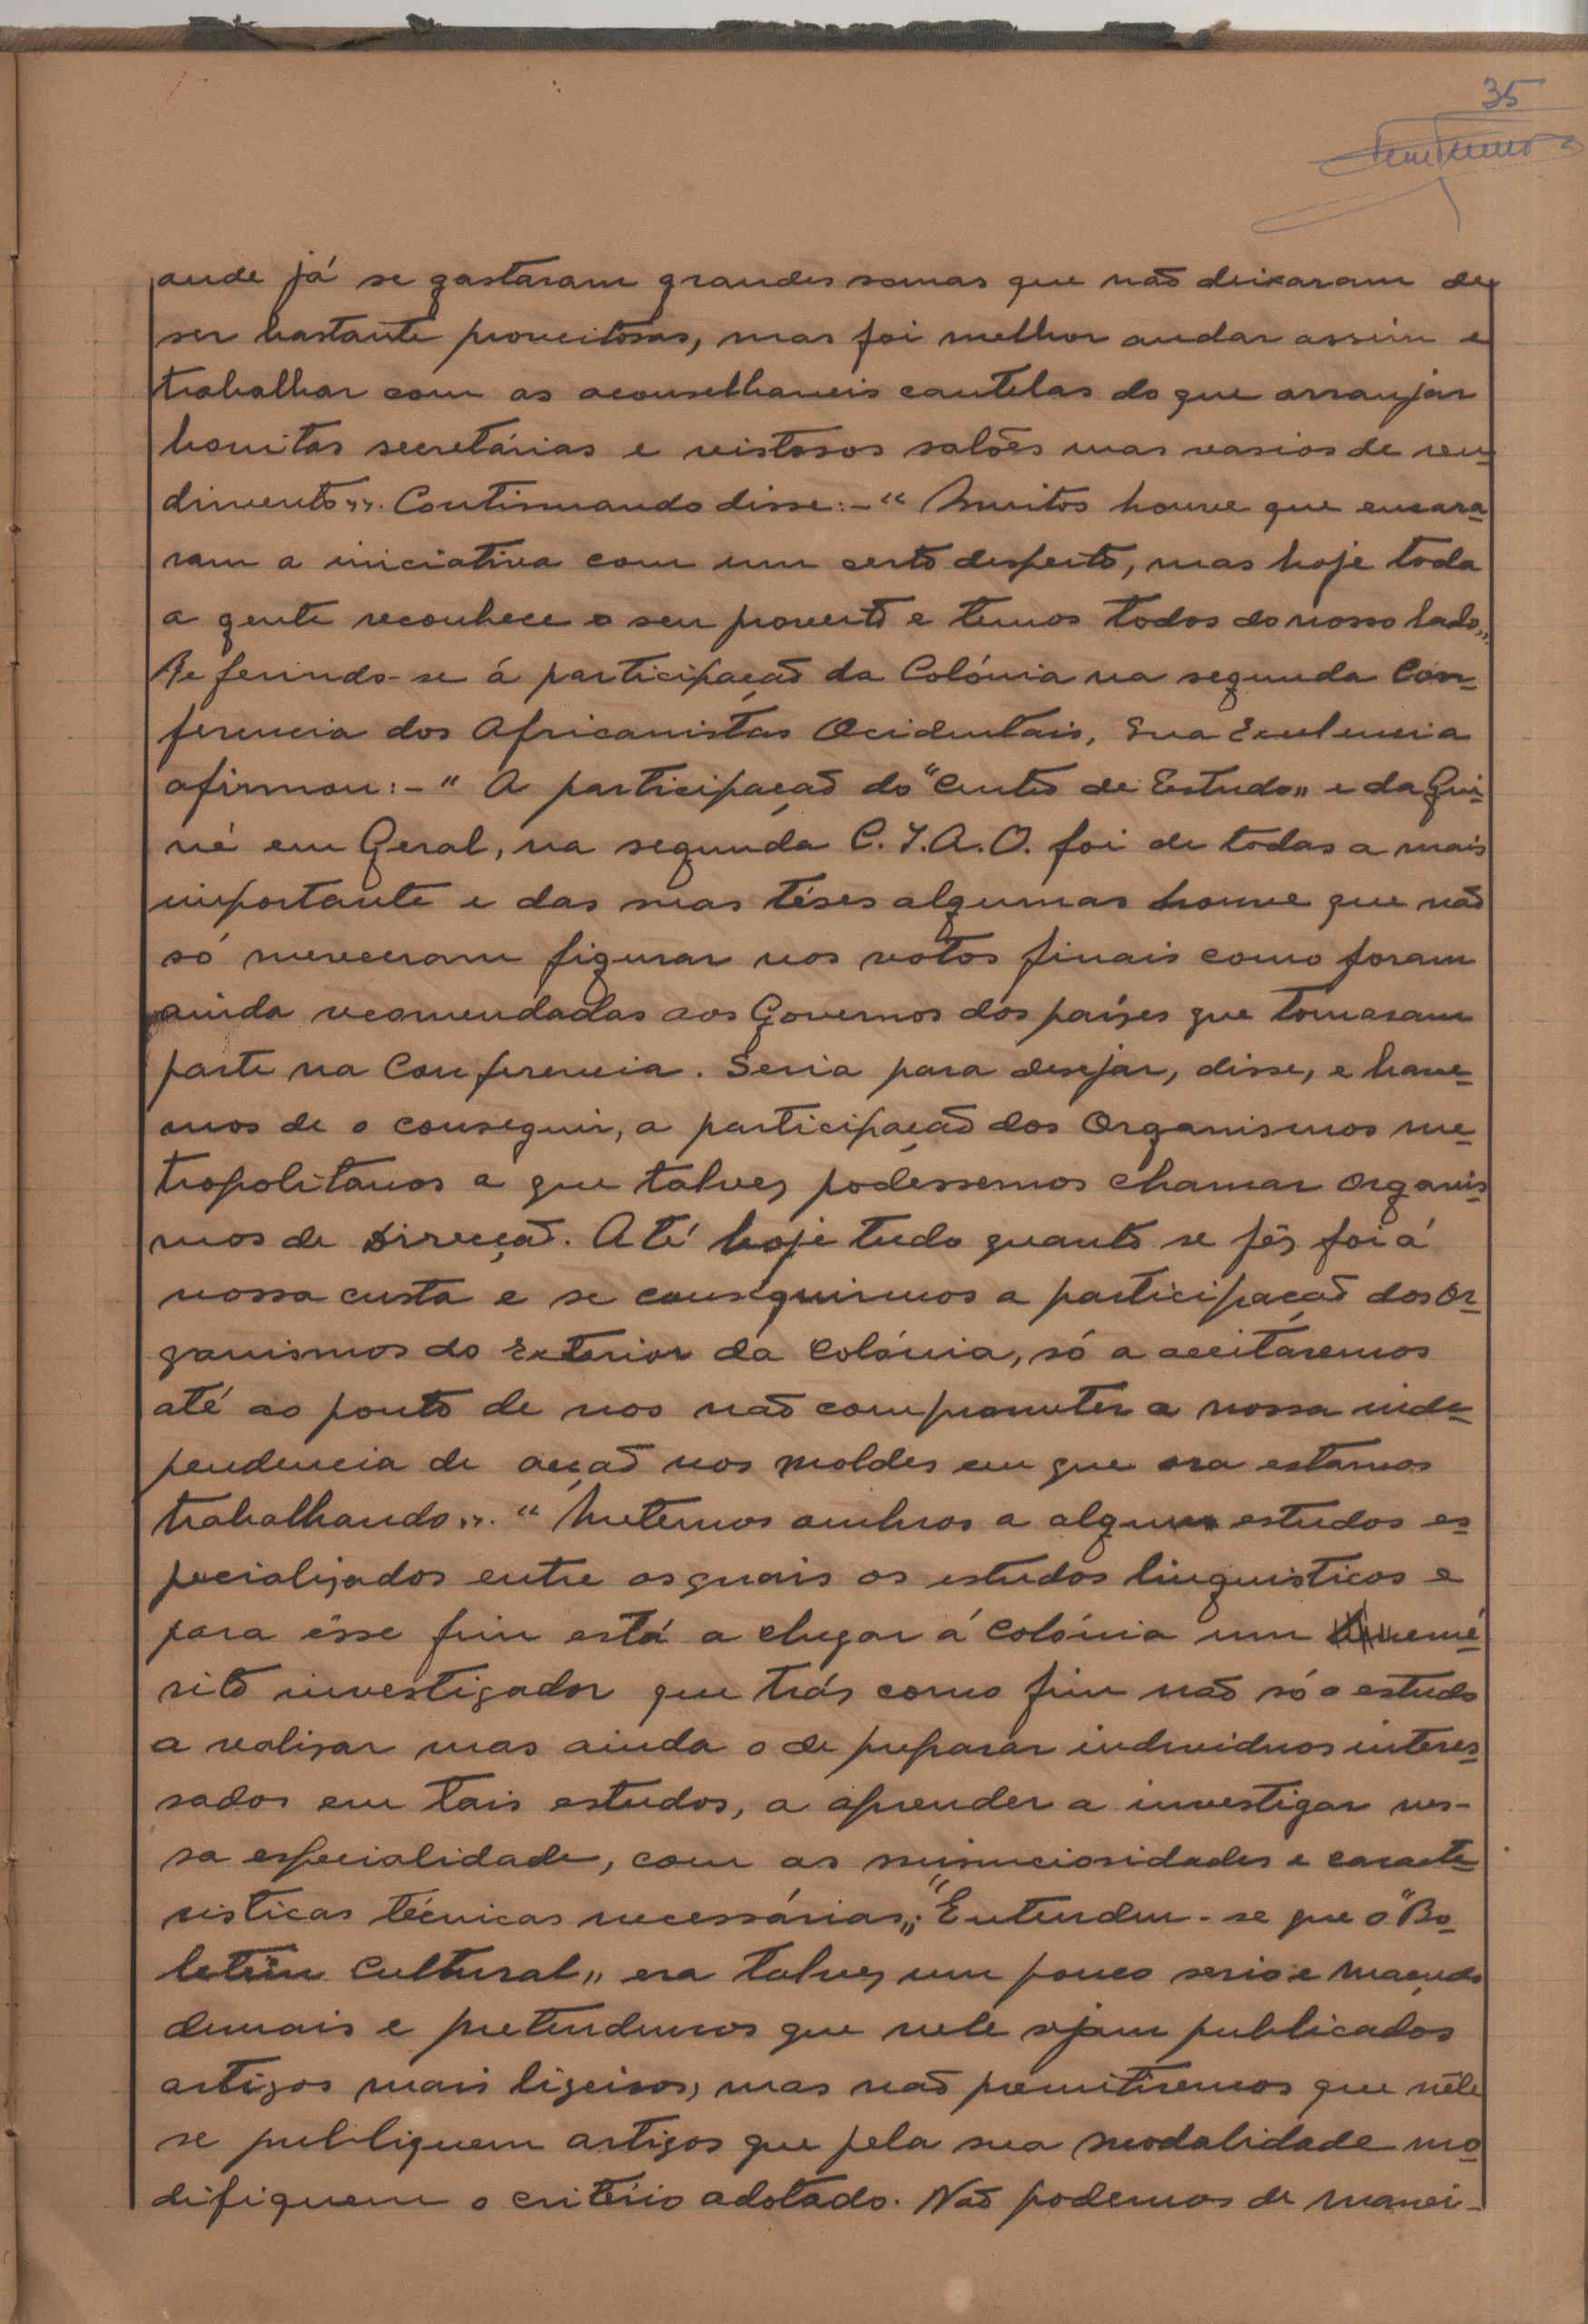 35
aude já se gastaram grandes somas que não deixaram de
ser bastante proveitosas, mas foi melhor andar assim e
trabalhar com as aconselhaveis cautelas do que arranjar
bonitas secretárias e vistosos salões mas vasios de ren-
dimento". Continuando disse:-" Muitos houve que encara-
ram a iniciativa com um certo despeito, mas hoje toda
a gente reconhece o seu proveito e temos todos do nosso lado"
Referindo-se á participação da Colónia na segunda Con-
ferencia dos Africanistas Ocidentais, Sua Excelencia
afirmou:-" A participação do "Centro de Estudo" e da Gui-
né em Geral, na segunda C.I.A.O. foi de todas a mais
importante e das suas téses algumas houve que não
só mereceram figurar nos votos finais como foram
ainda recomendadas aos Governos dos países que tomaram
parte na Conferencia. Seria para desejar, disse, e have-
mos de o conseguir, a participação dos Organismos me-
tropolitanos a que talvez podéssemos chamar organis-
mos de Direcção. Até hoje tudo quanto se fês foi á
nossa custa e se conseguirmos a participação dos Or-
ganismos do Exterior da Colónia, só a aceitaremos
até ao ponto de nos não comprometer a nossa inde-
pendencia de acção nos moldes em que ora estamos
trabalhando". " Metemos ombros a alguns estudos es-
pecializados entre os quais os estudos linguisticos e
para êsse fim está a chegar á Colónia um
rito investigador que trás como fim não só o estudo
a realizar mas ainda o de preparar individuos interes-
sados em tais estudos, a aprender a investigar nes-
sa especialidade, com as minuciosidades e caracte-
risticas técnicas necessárias"; "Entendeu-se que o "Bo-
letim Cultural" era talvez um pouco serio e maçudo
demais e pretendemos que nele sejam publicados
artigos mais ligeiros, mas não permitiremos que nêle
se publiquem artigos que pela sua modalidade mo-
difiquem o critério adotado. Não podemos de manei-